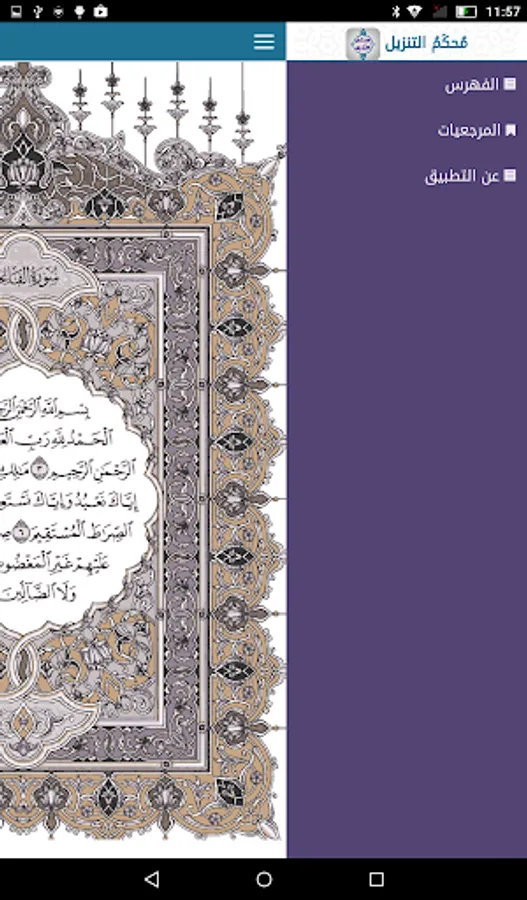 11:57
مُحكَمُ التنزيل
الفهرس
المرجعيات
عن التطبيق
سُورَةُ الفَاتِحَ
بِسْمِ اللَّهِ الرَّحْمَٰنِ الرَّ
الْحَمْدُ لِلَّهِ رَبِّ الْعَ
الرَّحْمَٰنِ الرَّحِيمِ ٣ مَالِكِ
إِيَّاكَ نَعْبُدُ وَإِيَّاكَ نَسْتَعِ
الصِّرَاطَ الْمُسْتَقِيمَ ٦ صِ
عَلَيْهِمْ غَيْرِ الْمَغْضُو
وَلَا الضَّالِّينَ